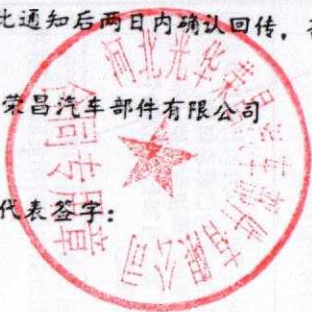 此通知后两日内确认回传,
荣昌汽车部件有限公司
代表签字:
河北光华荣昌汽车部件有限公司
合同专用章